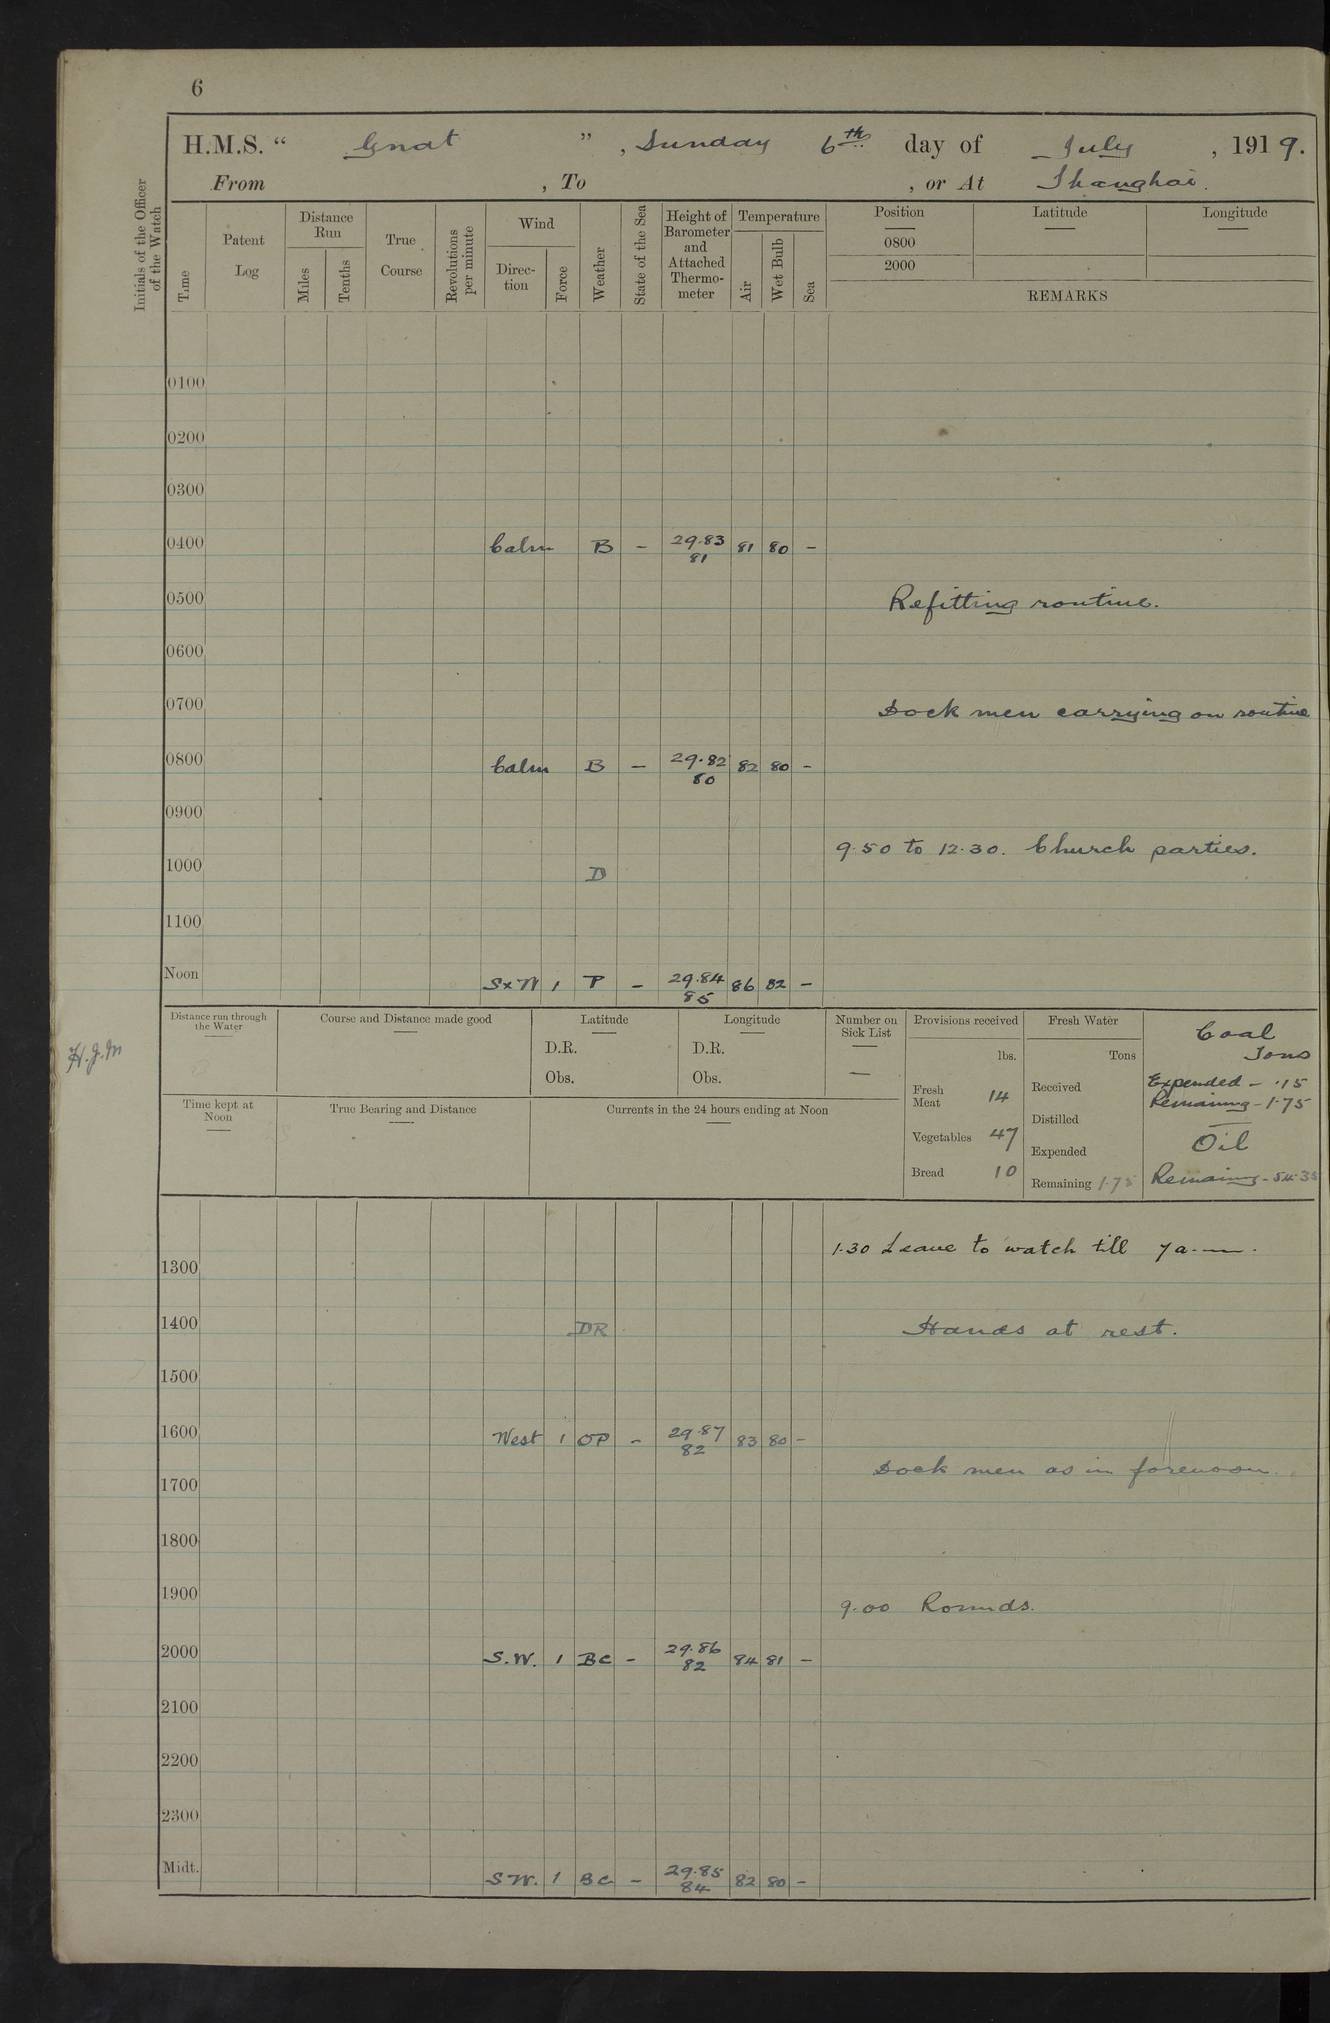 6
H.M.S. “ Gnat ” , Sunday 6th day of July , 1919.
From , To , or At Shanghai.
Initials of the Officer of the Watch
Time
Patent Log
Distance Run
Miles
Tenths
True Course
Revolutions per minute
Wind
Direc-tion
Force
Weather
State of the Sea
Height of Barometer and Attached Thermo-meter
Temperature
Air
Wet Bulb
Sea
Position
0800
2000
Latitude
Longitude
REMARKS
0100
0200
0300
0400 Calm B – 29.83 81 81 80 –
0500 Refitting routine.
0600
0700 Dock men carrying on routine
0800 Calm B – 29.82 80 82 80 –
0900
9.50 to 12.30. Church parties.
1000 D
1100
Noon SxW 1 P – 29.84 85 86 82 –
H.J.M
Distance run through the Water
Course and Distance made good
Latitude
D.R.
Obs.
Longitude
D.R.
Obs.
Number on Sick List
—
Provisions received
lbs.
Fresh Meat 14
Vegetables 47
Bread 10
Fresh Water
Tons
Received
Distilled
Expended
Remaining 1.75
Coal
Tons
Expended – .15
Remaining – 1.75
Oil
Remaining – 54.35
Time kept at Noon
True Bearing and Distance
Currents in the 24 hours ending at Noon
1.30 Leave to watch till 7 a.m.
1300
1400 DR Hands at rest.
1500
1600 West 1 OP – 29.87 82 83 80 –
Dock men as in forenoon.
1700
1800
1900 9.00 Rounds.
2000 S.W. 1 BC – 29.86 82 84 81 –
2100
2200
2300
Midt. SW. 1 BC – 29.85 84 82 80 –